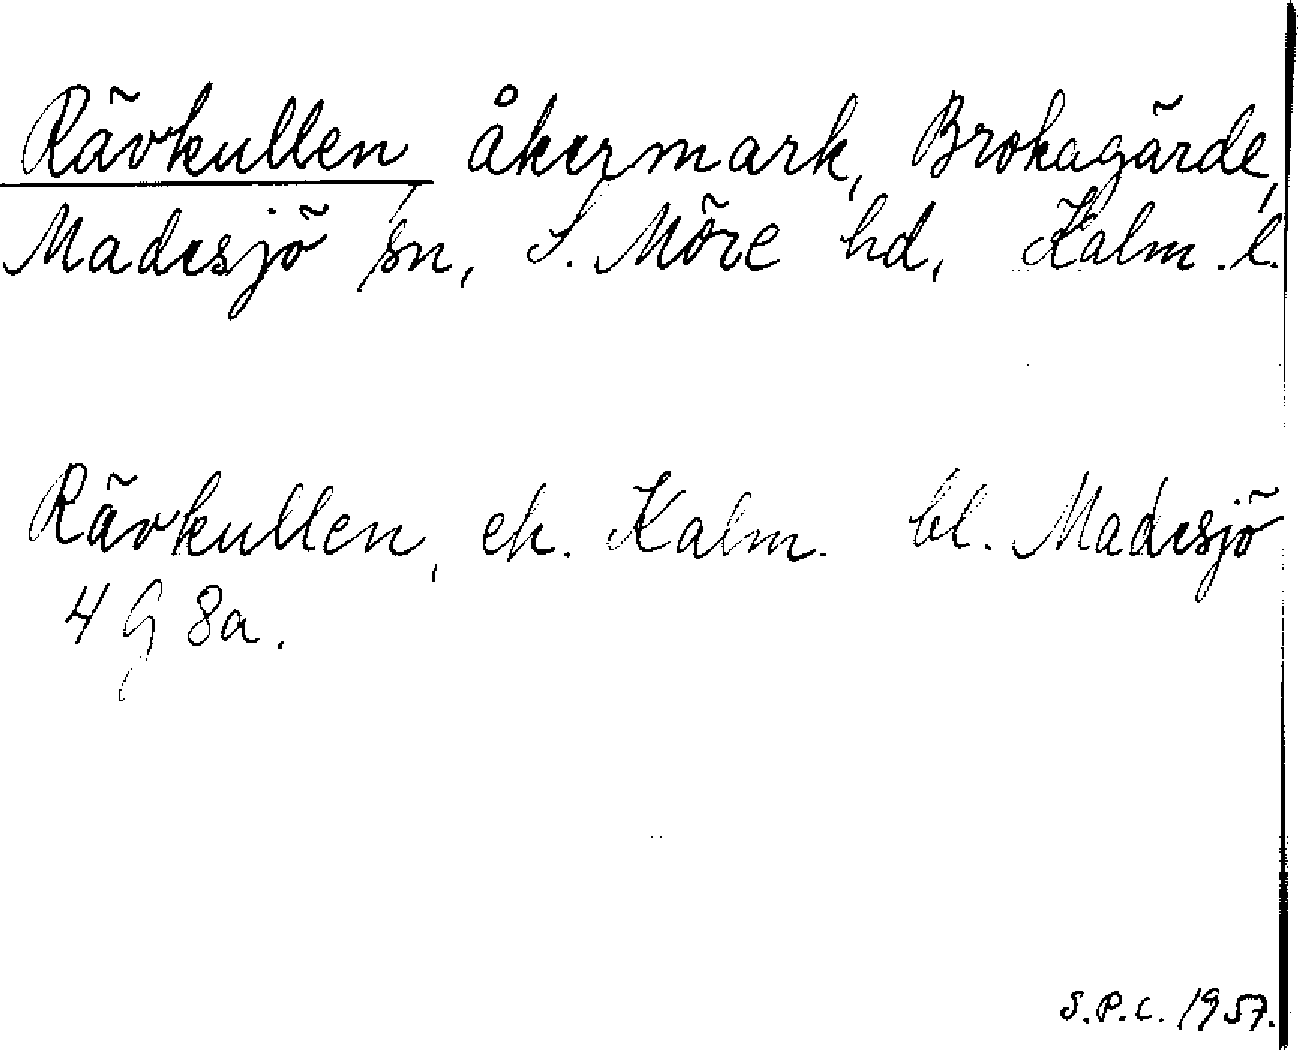 Rävkullen, åkermark, Brokagärde,
Madesjö sn, S. Möre hd, Kalm. l.
Rävkullen, ek. Kalm. bl. Madesjö
4 G 8a.
S.P.C. 1957.